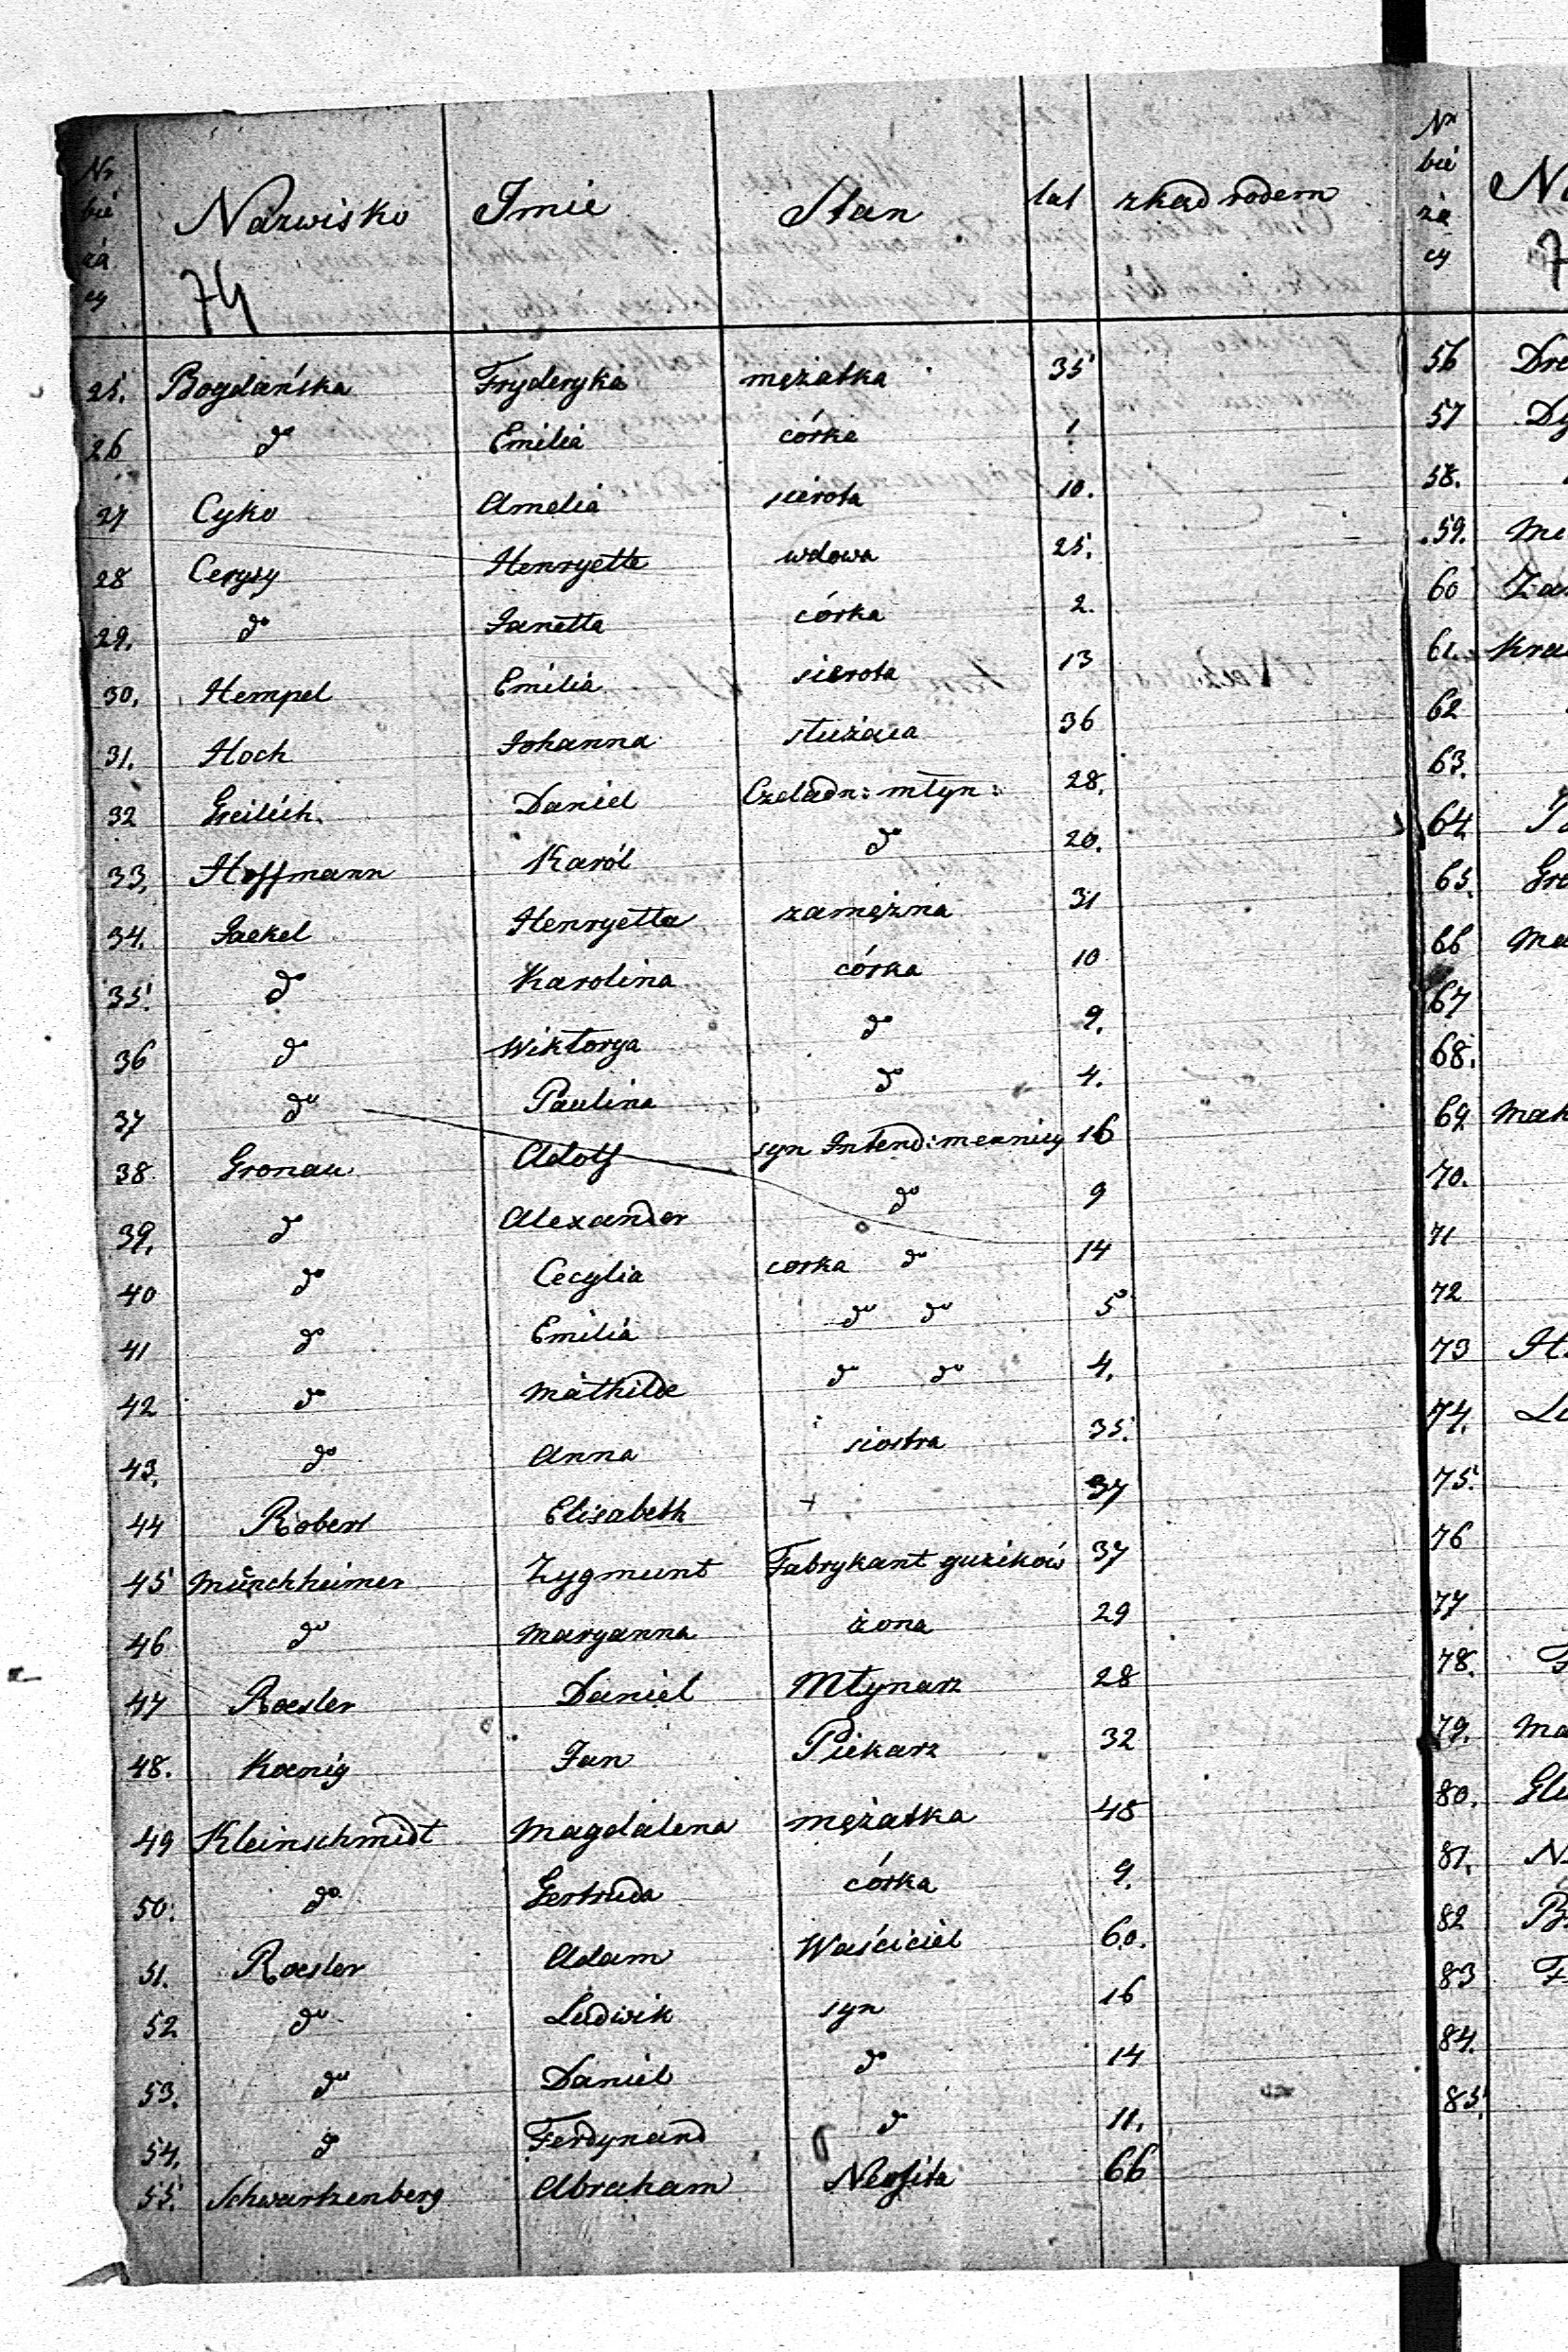 Nr bie żą cy Nazwisko Imie Stan lat zkąd rodem
74
25. Bogdańska Fryderyka mężatka 35
26 do Emilia córka 1
27 Cyko Amelia sierota 10.
28 Henryetta wdowa 25.
29. do Janetta córka 2.
30. Hempel Emilia sierota 13
31. Hoch Johanna służąca 36
32 Daniel Czeladn: młyn: 28.
33. Hoffmann Karól do 20.
34. Jaekel Henryetta zamężna 31
35. do Karolina córka 10
36 do Wiktorya do 9.
37 do Paulina do 4.
38. Gronau Adolf syn Intend: mennicy 16
39. do Alexander do 9
40 do Cecylia corka do 14
41 do Emilia do do 5
42 do Mathilde do do 4.
43. do Anna siostra 35.
44 Robert Elisabeth + 37
45 Münchheimer Zygmunt Fabrykant guzików 37
46 do Maryanna żona 29
47 Roesler Daniel Młynarz 28
48. Koenig Jan Piekarz 32
49 Kleinschmidt Magdalena mężatka 48
50. do Gertruda córka 9.
51. Roesler Adam Waściciel 60.
52 do Ludwik syn 16
53. do Daniel do 14
54. do Ferdynand do 11.
55. Schwartzenberg Abraham Neofita 66
Nr bie żą cy N
7
56 Dre
57 Dy
58.
59. Me
60 Za
61. Kra
62
63.
64.
65. Gre
66 Ma
67
68.
69. Mak
70.
71
72
73
74. Le
75.
76
77
78.
79. Ma
80. Glu
81. N
82
83
84.
85.